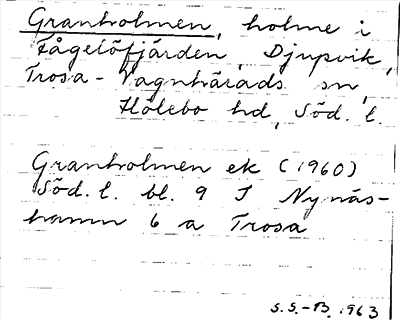 Granholmen, holme i
Fågelöfjärden, Djupvik,
Trosa-Vagnhärads sn,
Hölebo hd, Söd. l.
Granholmen ek (1960)
Söd. l. bl. 9 I Nynäs-
hamn 6 a Trosa
S.S.-B. 1963